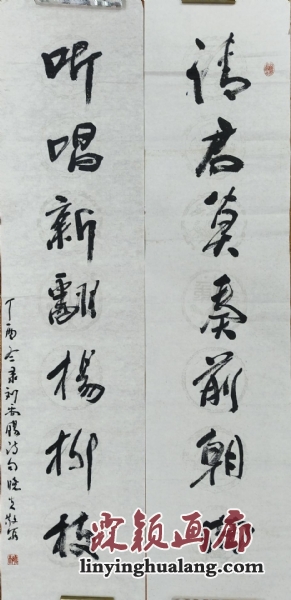 请君莫奏前朝
听唱新翻楊柳枝
丁酉冬录刘禹锡诗句
霖颖画廊
linyinghualang.com